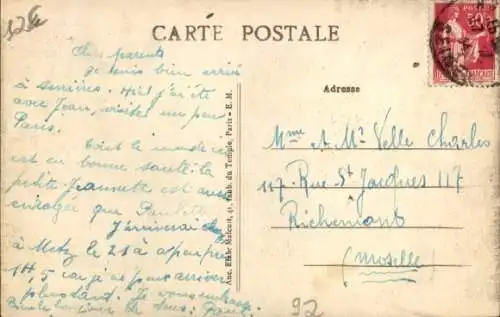 CARTE POSTALE
Chers parents
je suis bien arrivé
à Hier j'ai été
avec Jean, visiter un peu
Paris.
Tout le monde ici
est en bonne santé. la
petite Jeannette est aussi
que Paulette
J'arriverai
à Metz le 21 à
1H,5 car je ne peux arriver
plus tard. Je vous embrasse
de tous. Paul
Anc. Etabl. Malcuit, 41, Faub. du Temple, Paris - E. M.
Adresse
Mme A Mr Velle Charles
117 Rue St Jacques 117
Richemont
(Moselle
92
POSTES
50